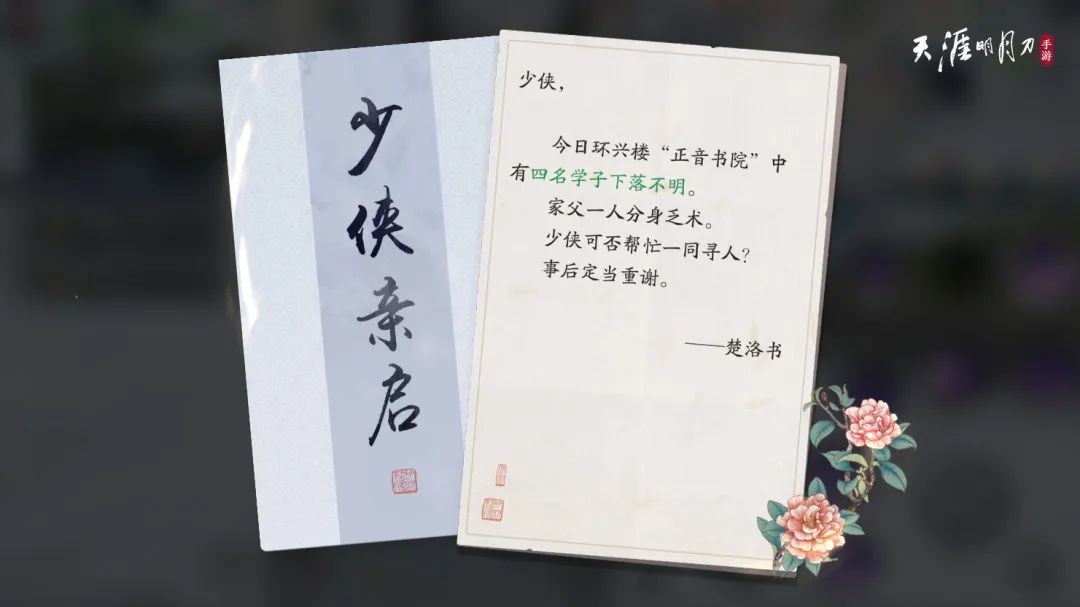 少侠亲启
少侠，
今日环兴楼“正音书院”中
有四名学子下落不明。
家父一人分身乏术。
少侠可否帮忙一同寻人？
事后定当重谢。
——楚洛书
天涯明月刀
手游